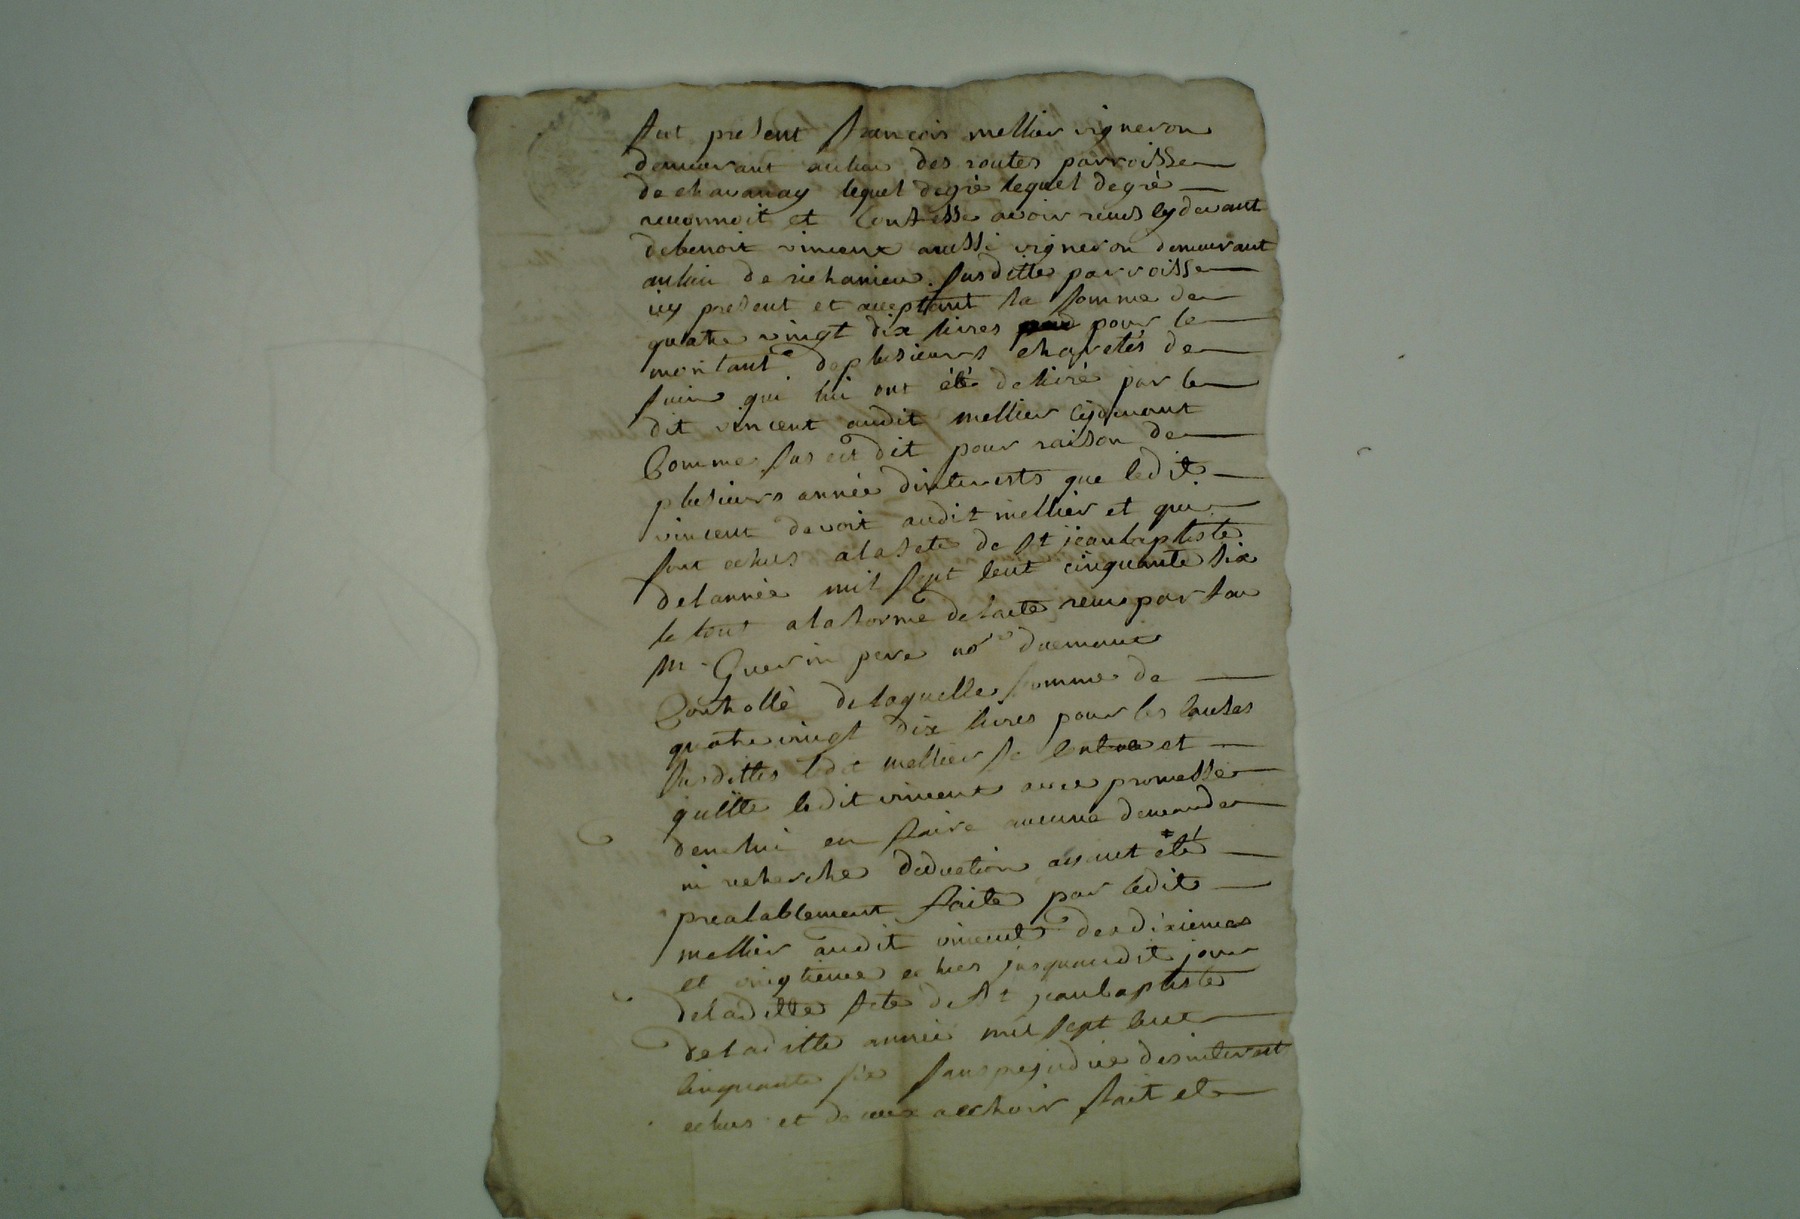 fut present francois mellier vigneron
demeurant au lieu des routes parroisse
de chavanay lequel degré lequel degré
reconnoit et confesse avoir reçus cy devant
de benoit vincent aussi vigneron demeurant
au lieu de richanieu susditte parroisse
icy present et acceptant la somme de
quatre vingt dix livres pour le
montant de plusieurs charetés de
foin qui lui ont été delivré par le
dit vincent audit mellier cydevant
Comme sus est dit pour raison de
plusieurs année dinterests que ledit
vincent devoit audit mellier et qui
sont echus a la fete de st jean baptiste
de lannée mil sept cent cinquante six
le tout a la forme de lacte recu par feu
m. Guerin pere nore duement
Controllé de laquelle somme de
quatre vingt dix livres pour les causes
susdittes ledit mellier se contente et
quitte ledit vincent avec promesse
de ne lui en faire aucune demande
ni recherche deduction ayant été
prealablement faite par ledit
mellier audit vincent des dixiemes
et vingtieme echus jusquaudit jour
de laditte fete de st jean baptiste
de laditte année mil sept cent
cinquante six sans prejudice des interest
echus et de ceux a echoir fait et